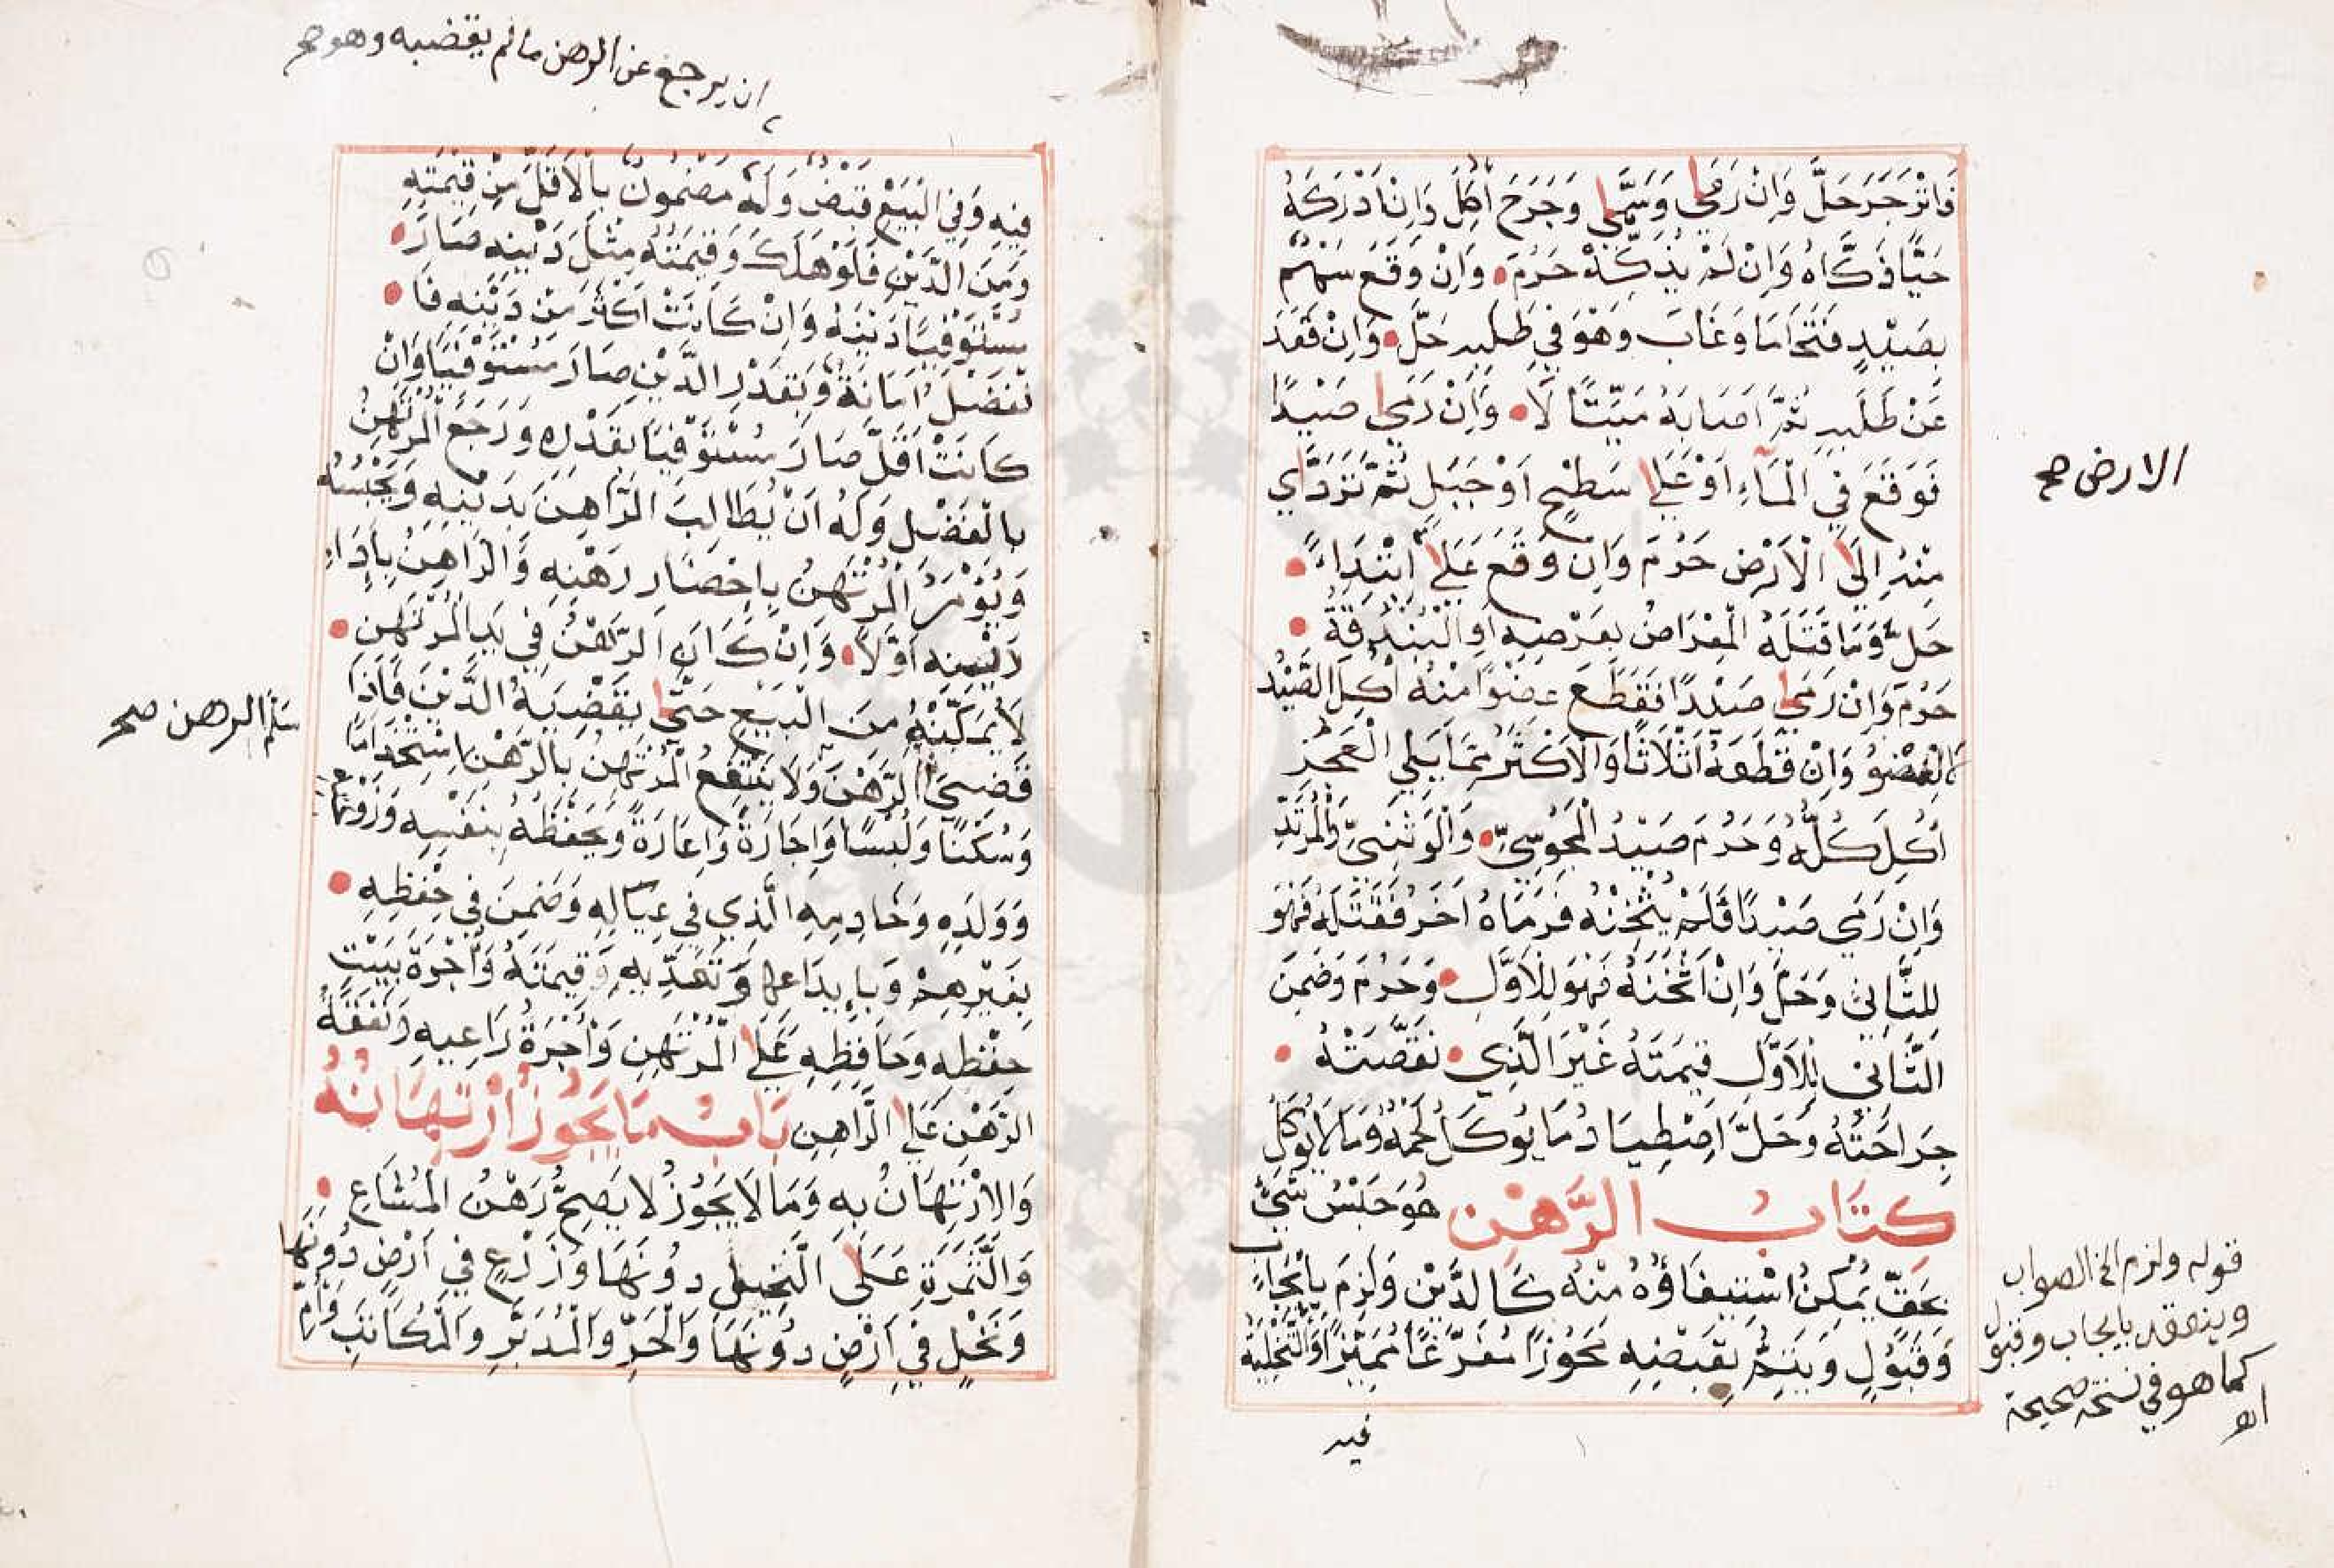 فَانْزَجَرَ حَلَّ وَاِنْ رَمَى وَسَمَّى وَجَرَحَ اُكِلَ وَاِنْ اَدْرَكَهُ
حَيًّا ذَكَّاهُ وَاِنْ لَمْ يُذَكِّهْ حَرُمَ وَاِنْ وَقَعَ سَهْمٌ
بِصَيْدٍ فَتَحَامَا وَغَابَ وَهْوَ فِي طَلَبِهِ حَلَّ وَاِنْ قَعَدَ
عَنْ طَلَبِهِ ثُمَّ اَصَابَهُ مَيِّتًا لَا وَاِنْ رَمَى صَيْدًا
فَوَقَعَ فِي الْمَآءِ اَوْ عَلَى سَطْحٍ اَوْ جَبَلٍ ثُمَّ تَرَدَّاي
مِنْهُ اِلَى الْاَرْضِ حَرُمَ وَاِنْ وَقَعَ عَلَى اِبْتِدَاءً
الارض صح
حَلَّ وَمَا قَتَلَهُ الْمِعْرَاضُ بِعَرْضِهِ اَوِ الْبُنْدُقَةُ
حَرُمَ وَاِنْ رَمَى صَيْدًا فَقَطَعَ عُضْوًا مِنْهُ اُكِلَ الصَّيْدُ
لَا الْعُضْوُ وَاِنْ قَطَعَهُ اَثْلَاثًا وَالْاَكْثَرُ مِمَّا يَلِي الْعَجُزَ
اُكِلَ كُلُّهُ وَحَرُمَ صَيْدُ الْمَجُوسِيِّ وَالْوَثَنِيِّ وَالْمُرْتَدِّ
وَاِنْ رَمَى صَيْدًا فَلَمْ يُثْخِنْهُ فَرَمَاهُ اٰخَرُ فَقَتَلَهُ فَهُوَ
لِلثَّانِي وَحَلَّ وَاِنْ اَثْخَنَهُ فَهُوَ لِلْاَوَّلِ وَحَرُمَ وَضَمِنَ
الثَّانِي لِلْاَوَّلِ قِيمَتَهُ غَيْرَ الَّذِي نَقَصَتْهُ
جِرَاحَتُهُ وَحَلَّ اصْطِيَادُ مَا يُوكَلُ لَحْمُهُ وَمَا لَا يُوكَلُ
كِتَابُ الرَّهْنِ هُوَ حَبْسُ شَيْءٍ
بِحَقٍّ يُمْكِنُ اسْتِيفَاؤُهُ مِنْهُ كَالدَّيْنِ وَلَزِمَ بِاِيجَابٍ
وَقَبُوْلٍ وَيَتِمُّ بِقَبْضِهِ مَحُوْزًا مُفَرَّغًا مُمَيَّزًا وَالتَّخْلِيَةُ
قوله ولزم الخ الصواب
وينعقد بايجاب وقبول
كما هو في نسخة صحيحة
اهـ
فيه
ان يرجع عن الرهن مالم يقضبه وهو صح
فِيهِ وَفِي الْبَيْعِ قَبْضٌ وَلَهُ مَضْمُونٌ بِالْاَقَلِّ مِنْ قِيمَتِهِ
وَمِنَ الدَّيْنِ فَلَوْ هَلَكَ وَقِيمَتُهُ مِثْلُ دَيْنِهِ صَارَ
مُسْتَوْفِيًا دَيْنَهُ وَاِنْ كَانَتْ اَكْثَرَ مِنْ دَيْنِهِ فَا
لْفَضْلُ اَمَانَةٌ وَبِقَدْرِ الدَّيْنِ صَارَ مُسْتَوْفِيًا وَاِنْ
كَانَتْ اَقَلَّ صَارَ مُسْتَوْفِيًا بِقَدْرِهِ وَرَجَعَ الْمُرْتَهِنُ
بِالْفَضْلِ وَلَهُ اَنْ يُطَالِبَ الرَّاهِنَ بِدَيْنِهِ وَيَحْبِسُهُ
وَيُؤْمَرُ الْمُرْتَهِنُ بِاِحْضَارِ رَهْنِهِ وَالرَّاهِنُ بِاَدَاءِ
دَيْنِهِ اَوَّلًا وَاِنْ كَانَ الرَّهْنُ فِي يَدِ الْمُرْتَهِنِ
لَا يُمَكِّنْهُ مِنَ الْبَيْعِ حَتَّى يَقْضِيَهُ الدَّيْنَ فَاِذَا
قَضَى الرَّهْنَ وَلَا يَنْتَفِعُ الْمُرْتَهِنُ بِالرَّهْنِ اسْتِخْدَامًا
سلم الرهن صح
وَسُكْنًا وَلُبْسًا وَاِجَارَةً وَاِعَارَةً وَيَحْفَظُهُ بِنَفْسِهِ وَزَوْجَتِهِ
وَوَلَدِهِ وَخَادِمِهِ الَّذِي فِي عِيَالِهِ وَضَمِنَ فِي حِفْظِهِ
بِغَيْرِهِمْ وَبِاِيدَاعِهَا وَتَعَدِّيهِ قِيمَتَهُ وَاُجْرَةُ بَيْتِ
حِفْظِهِ وَحَافِظِهِ عَلَى الْمُرْتَهِنِ وَاُجْرَةُ رَاعِيهِ وَنَفَقَةُ
الرَّهْنِ عَلَى الرَّاهِنِ بَابُ مَا يَجُوزُ ارْتِهَانُهُ
وَالِارْتِهَانُ بِهِ وَمَا لَا يَجُوزُ لَا يَصِحُّ رَهْنُ الْمُشَاعِ
وَالثَّمَرَةِ عَلَى النَّخِيلِ دُوْنَهَا وَزَرْعٍ فِي اَرْضٍ دُونَهَا
وَنَخْلٍ فِي اَرْضٍ دُوْنَهَا وَالْحُرِّ وَالْمُدَبَّرِ وَالْمُكَاتَبِ وَاُمِّ